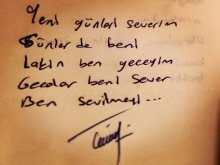 Yeni günleri severim
Günler de beni
Lakin ben geceyim
Geceler beni sever
Ben sevilmeyi...